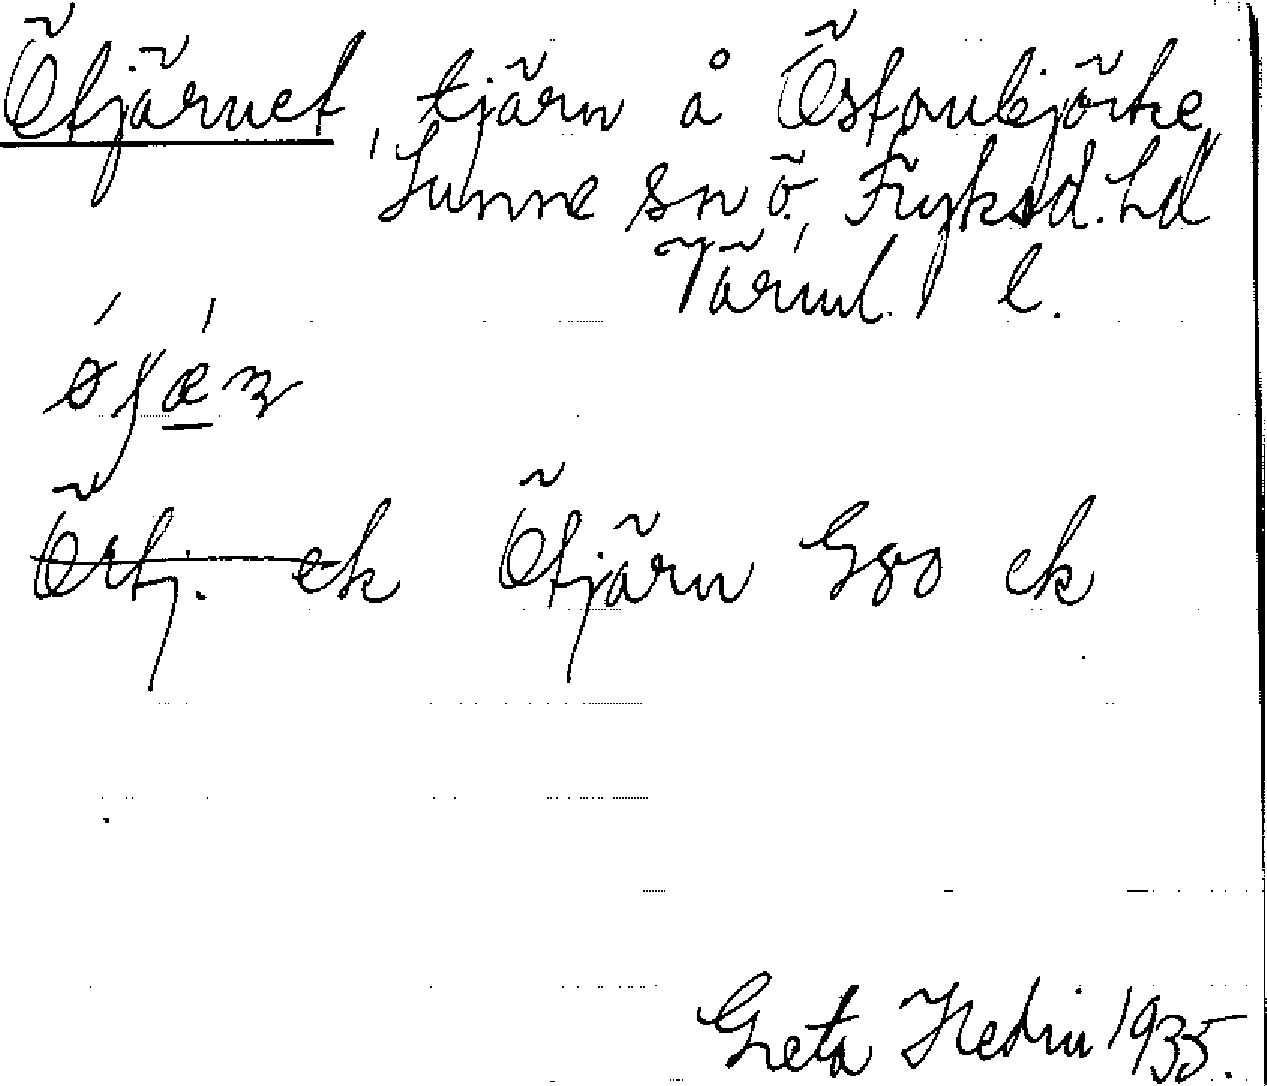 Ötjärnet, tjärn å Östanbjörke
Sunne sn ö. Fryksd. hd
Värml. l.
Örtj. ek Ötjärn Ggo ek
Greta Hedin 1935.